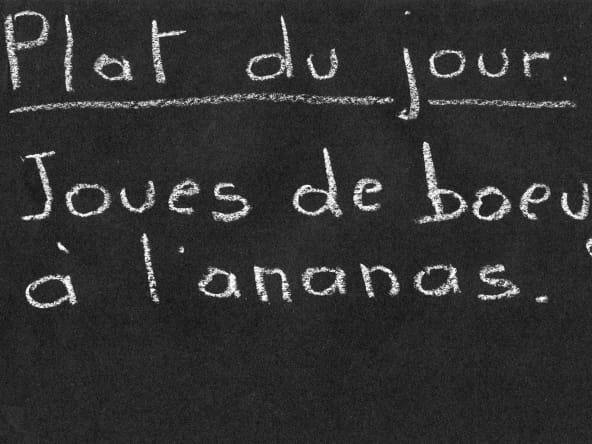 Plat du jour.
Joues de boeu
à l'ananas.